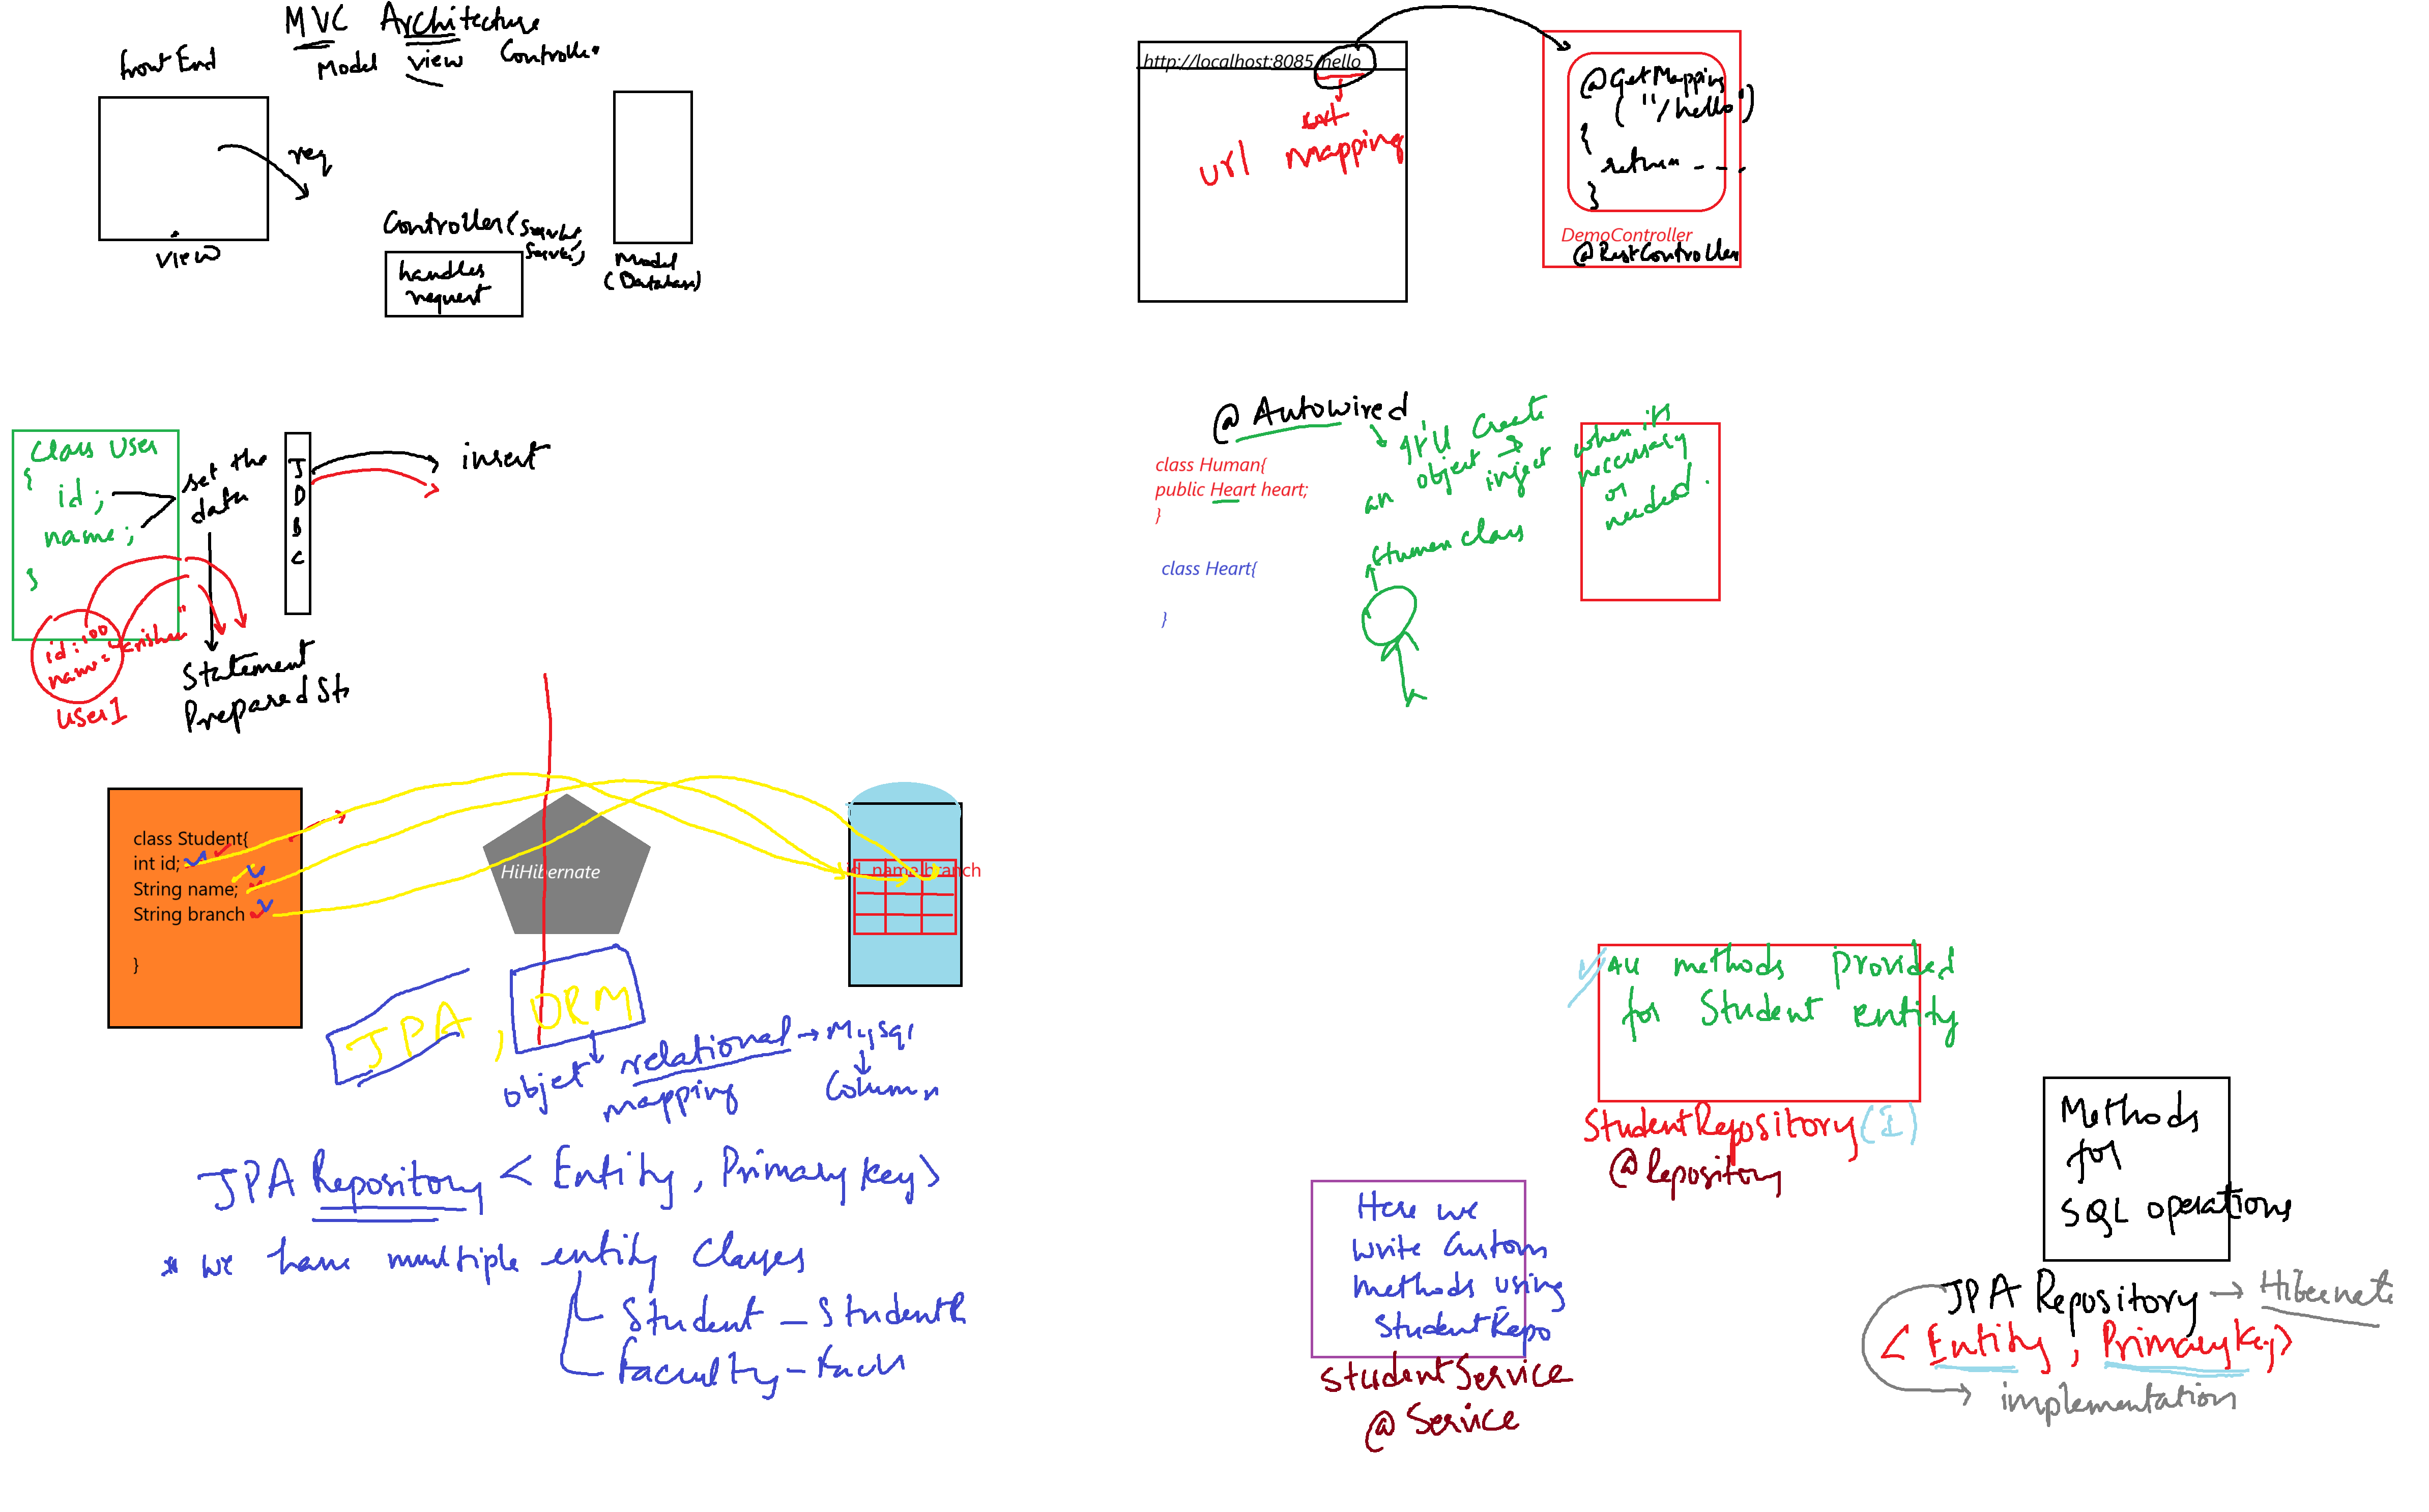 MVC Architecture
Model view Controller
frontEnd
req
view
Controller(
handles
request
Model
(Database)
http://localhost:8085/hello
url mapping
@GetMapping
("/hello")
{
return ----
}
DemoController
@RestController
class User
{
id;
name;
}
set the
data
J
D
B
C
insert
id:100
name=
user1
Statement
PreparedSt
@Autowired
class Human{
public Heart heart;
}
class Heart{
}
it'll Create
an object
inject
when it's
neccessary
or
needed.
Human class
class Student{
int id;
String name;
String branch
}
HiHibernate
id name branch
JPA, ORM
objet relational → Mysql
mapping
Column
JPA Repository < Entity, PrimaryKey>
* we have multiple entity Classes
Student - StudentR
Faculty -
All methods provided
for Student entity
StudentRepository(I)
@Repository
Here we
write Custom
methods using
StudentRepo
StudentService
@Service
Methods
for
SQL operations
JPA Repository → Hibernate
< Entity, PrimaryKey>
implementation